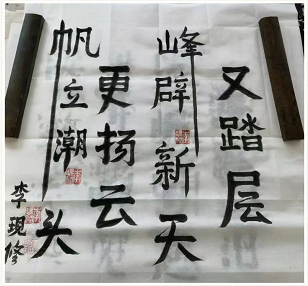 又踏层
峰辟新天
更扬云
帆立潮头
李現修